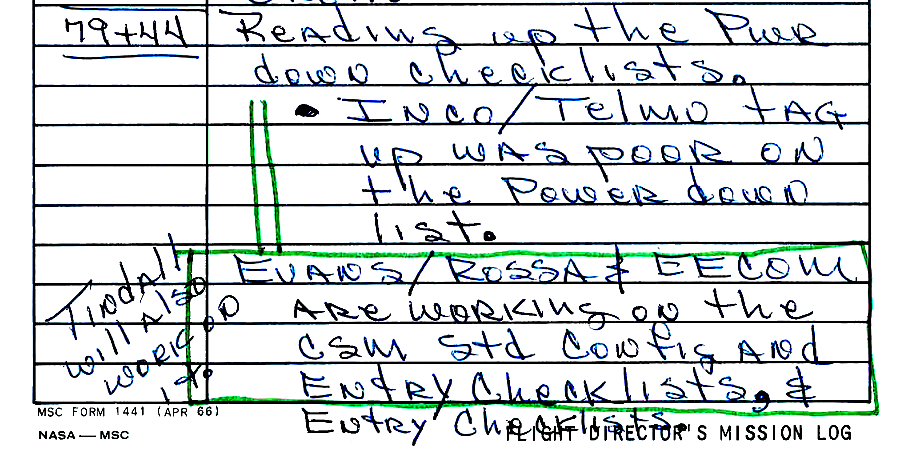 79+44 Reading up the Pwr
down checklists.
• INCO/Telmu tAG
up wAS pooR oN
the Power down
list.
EvANS/RossA & EECOM
ARe workiNg oN the
CSM Std CoNfig ANd
ENtRy Checklists, &
ENtRy Checklists.
TiNdAll
will Also
work oN
it.
MSC FORM 1441 (APR 66)
NASA — MSC
FLIGHT DIRECTOR'S MISSION LOG